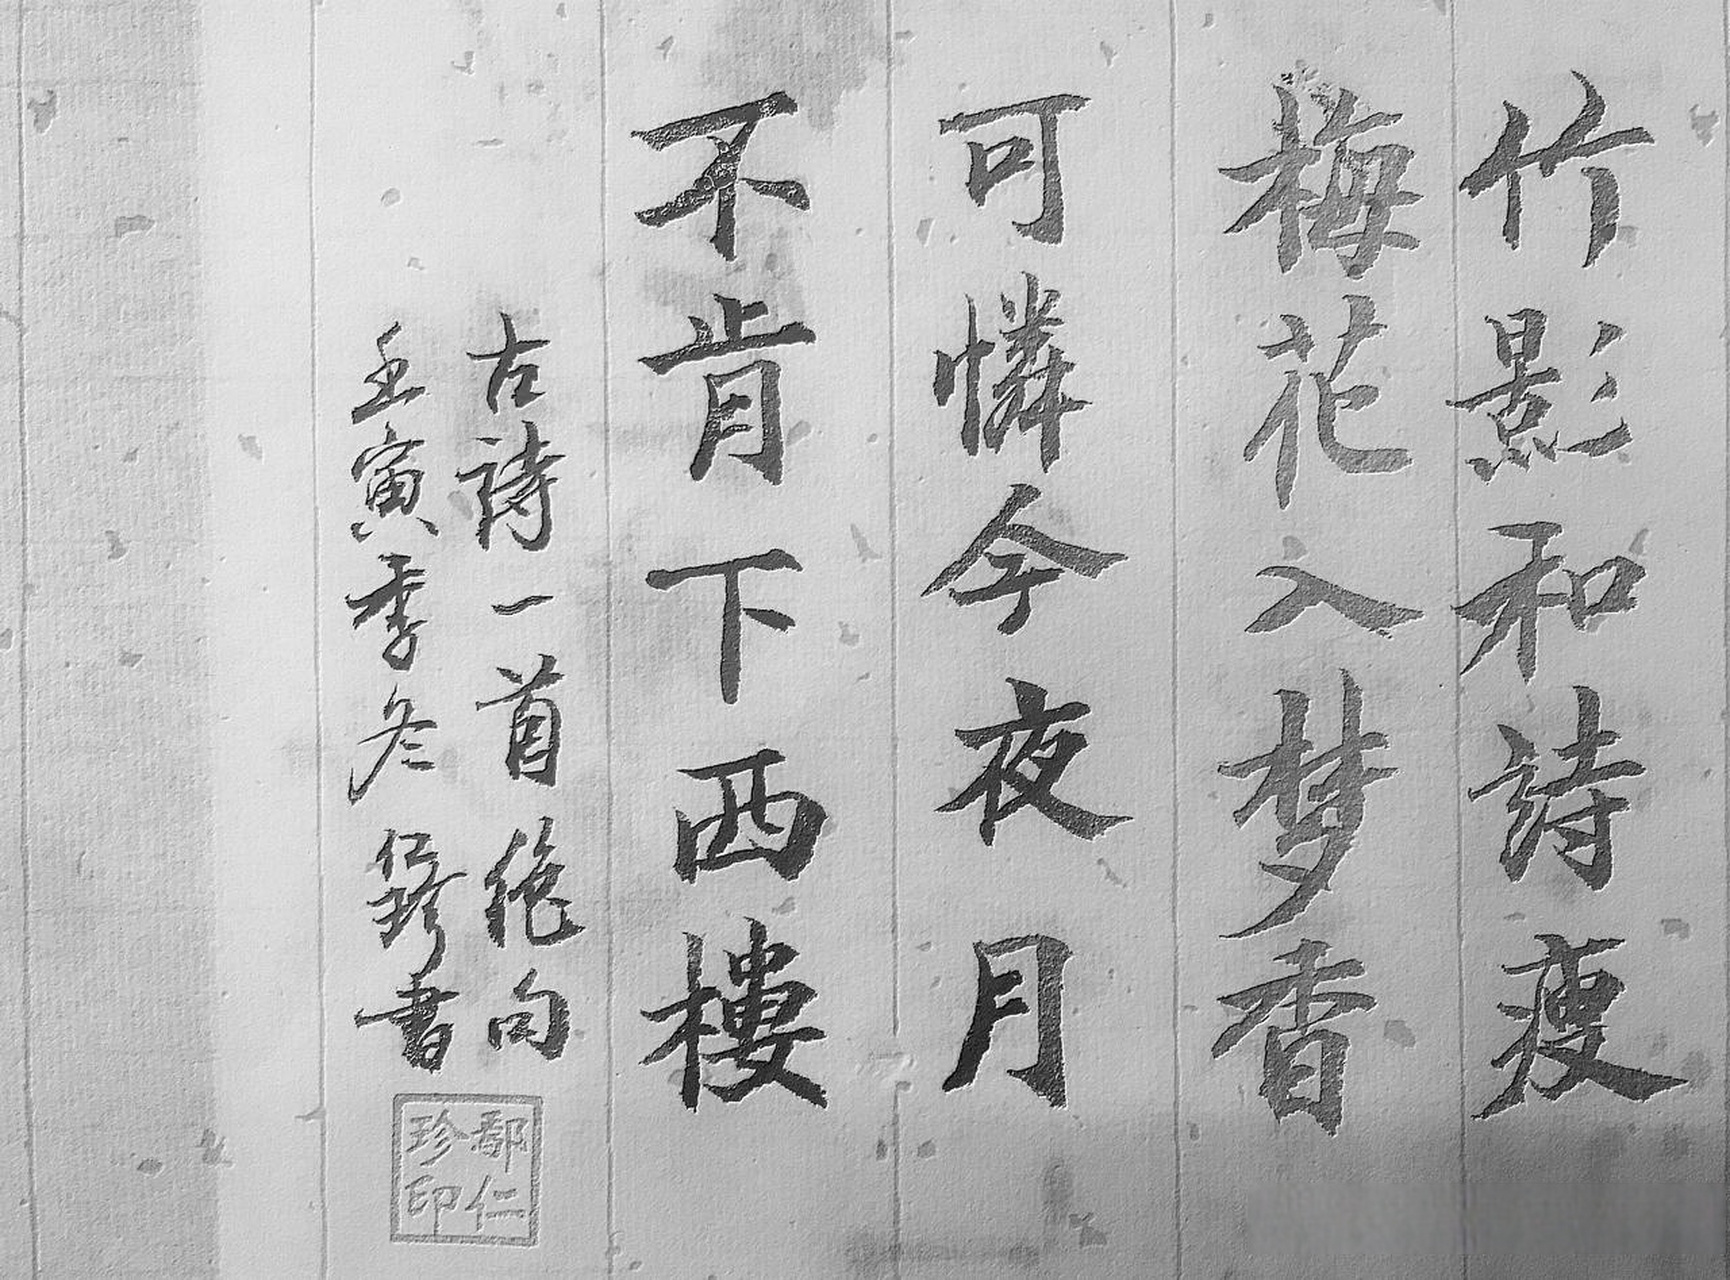 竹影和詩瘦
梅花入梦香
可憐今夜月
不肯下西樓
古詩一首绝句
壬寅季冬仁珍書
鄢仁珍印